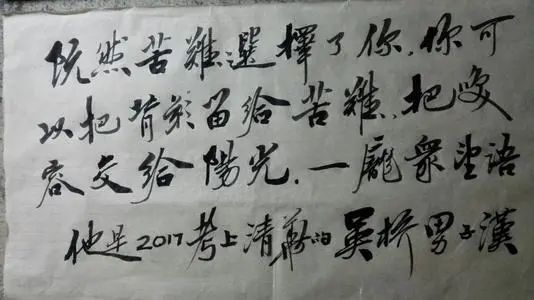 既然苦難選擇了你,你可
以把背影留給苦難,把笑
容交給陽光.一龐眾望語
他是2017考上清華的吳橋男子漢